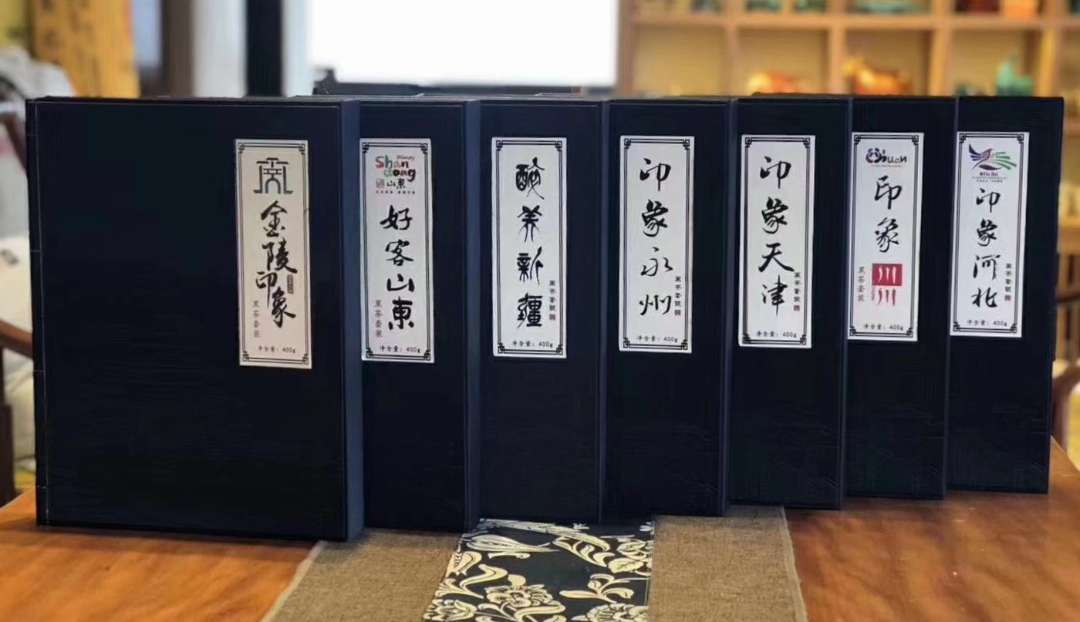 金陵
印象
黑茶套装
净含量：400g
Shan
dong
山東
好客山東
黑茶套装
净含量：400g
美新疆
黑茶套装
净含量：400g
印象永州
黑茶套装
净含量：400g
印象天津
黑茶套装
净含量：400g
印象
川
黑茶套装
净含量：400g
印象河北
黑茶套装
净含量：400g